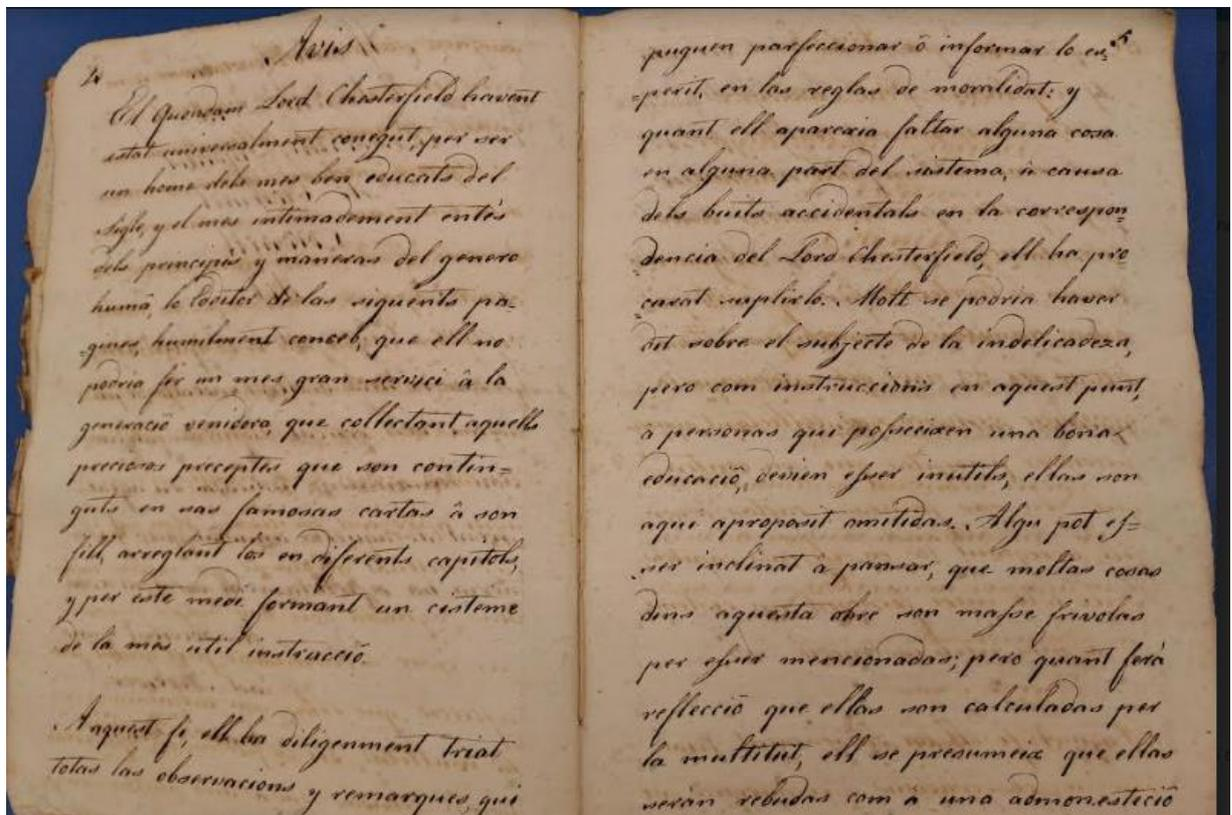 4
Avis
El Quondam Lord Chesterfield havent
estat universalment conegut, per ser
un home dels mes ben educats del
sigle, y el mes intimadement entés
dels principis y maneras del genero
humá, lo Editor de las siguents pa=
=gines, humilment conceb, que ell no
podria fer un mes gran servici â la
generaciô venidora, que collectant aquells
preciosos preceptes que son contin=
guts en sas famosas cartas â son
fill, arreglant los en diferents capitols,
y per este medi formant un cisteme
de la mes util instrucciô.
A aquest fi, ell ha diligenment triat
totas las observacions y remarques, qui
5
puguen parfeccionar ô informar lo es=
=perit, en las reglas de moralidat; y
quant ell aparexia faltar alguna cosa
en alguna part del sistema, à causa
dels buits accidentals en la correspon=
dencia del Lord Chesterfield, ell ha pro=
=curat suplirlo. Molt se podria haver
dit sobre el subjecte de la indelicadeza,
pero com instruccions en aquest punt,
à personas qui posseeixen una bona
educaciô, devien esser inutils, ellas son
aqui aproposit omitidas. Algu pot es=
ser inclinat à pansar, que moltas cosas
dins aquesta obre son masse frivolas
per esser mencionadas; pero quant ferà
reflecciô que ellas son calculadas per
la multitut, ell se presumeix que ellas
seràn rebudas com à una admonesticiô